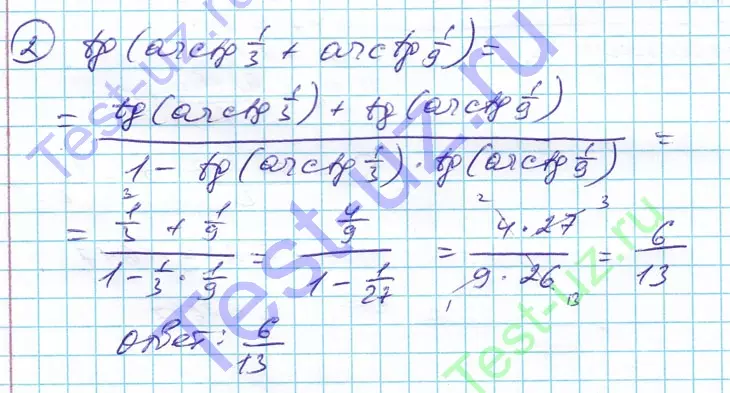 2 tg (arctg 1/3 + arctg 1/9) =
= (tg (arctg 1/3) + tg (arctg 1/9)) / (1 - tg (arctg 1/3) · tg (arctg 1/9)) =
= (1/3 + 1/9) / (1 - 1/3 · 1/9) = (4/9) / (1 - 1/27) = (4 · 27) / (9 · 26) = 6/13
ответ: 6/13
Test-uz.ru
Test-uz.ru
Test-uz.ru